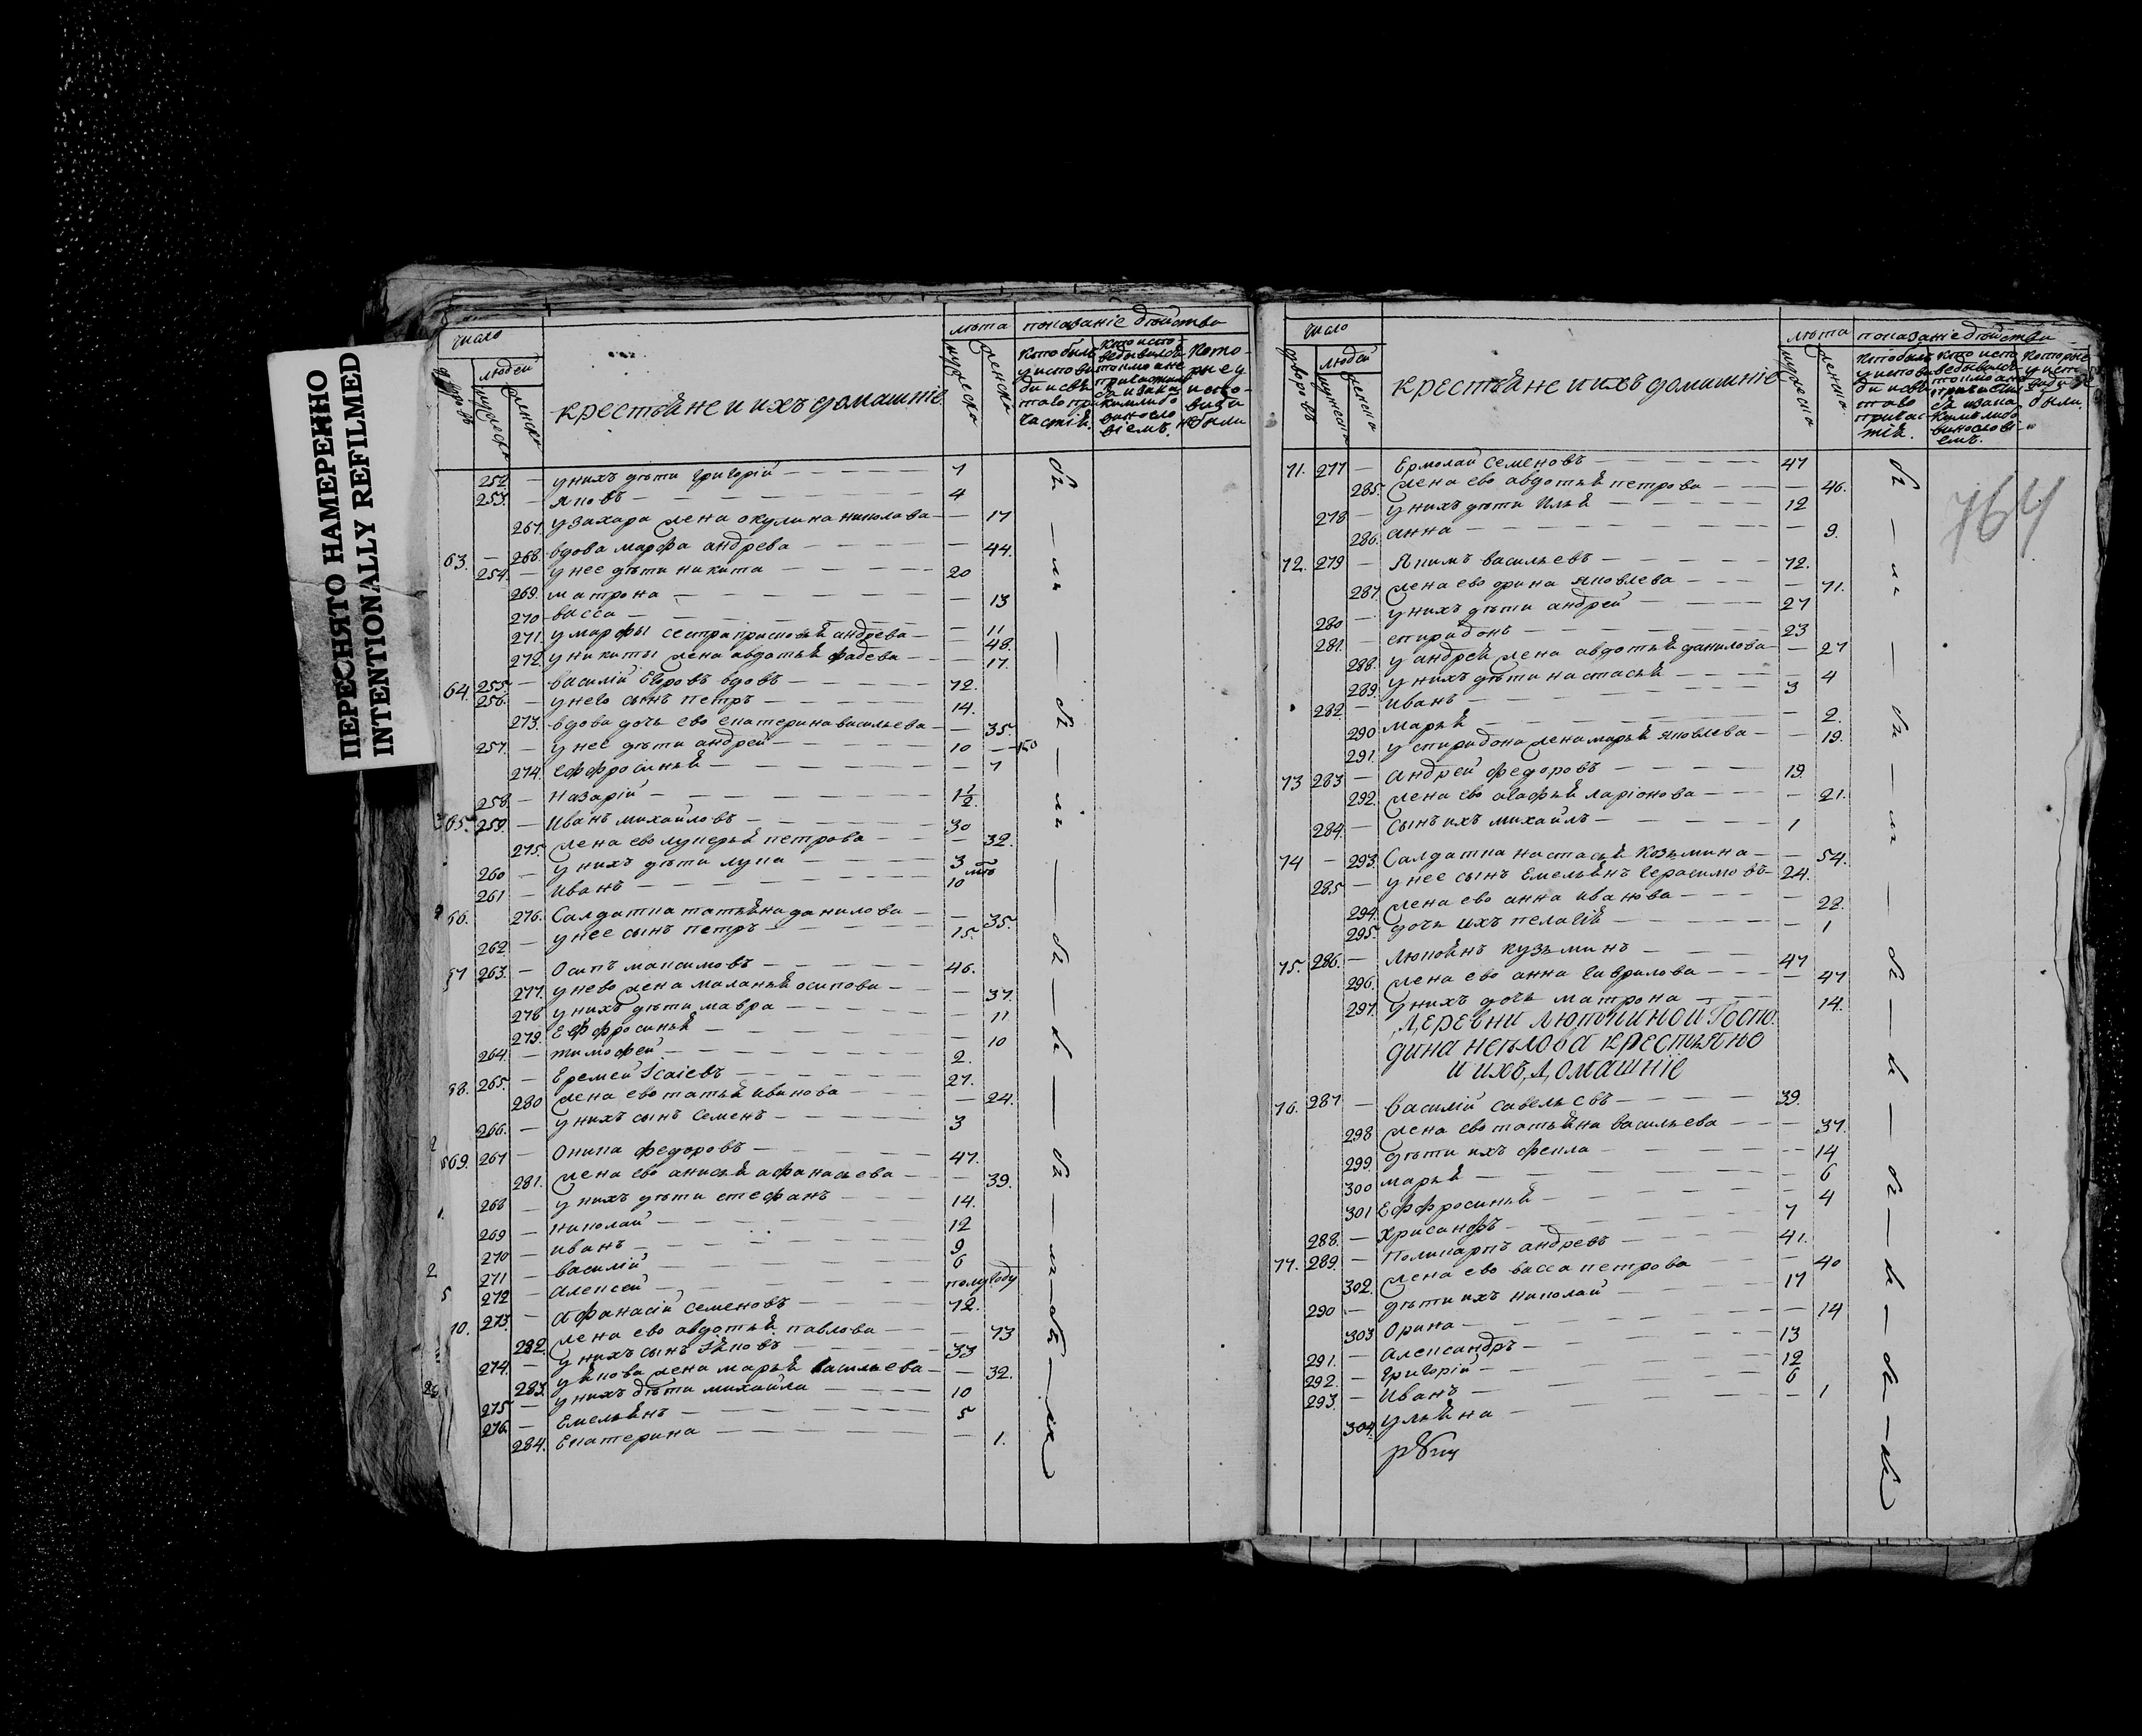 ПЕРЕСНЯТО НАМЕРЕННО
INTENTIONALLY REFILMED
число
лѣта показаніе дѣйства
дворовъ
людей
мужеска
женска
крестьяне и ихъ домашніе
мужеска
женска
252. — у нихъ дѣти григорій — 7
253. — яковъ — 4
267. у захара жена окулина николаева — 17
63. — 268. вдова марфа андрева — 44.
254. — у нее дѣти никита — 20
269. матрона — 13
270 васса — 11
271. у марфы сестра прасковья андрева — 48.
272. у никиты жена авдотья фадеева — 17.
64. 255. — василій егоровъ вдовъ — 72.
256. — у него сынъ петръ — 14.
273. вдова дочь ево екатерина васильева — 35
257. — у нее дѣти андрей — 10
274. еффросинья — 7
258. — назарій — 1½
65. 259. — иванъ михайловъ — 30
275. жена ево лукерья петрова — 32.
260 — у нихъ дѣти лука — 3
261 — иванъ — 10
66. 276. салдатка татьяна данилова — 35.
262 — у нее сынъ петръ — 15.
67 263. — осипъ максимовъ — 46.
277. у нево жена маланья осипова — 37.
278 у нихъ дѣти мавра — 11
279. еффросинья — 10
264. — тимофей — 2.
68. 265. — еремей ісаіевъ — 27.
280 жена ево татья иванова — 24.
266. — у нихъ сынъ семенъ — 3
69. 267 — оника федоровъ — 47.
281. жена ево анисья афанасьева — 39.
268 — у нихъ дѣти стефанъ — 14.
269 — николай — 12
270 — иванъ — 9
271 — василій — 6
272 — алексей — полугоду
70. 273. — афанасій семеновъ — 72.
282. жена ево авдотья павлова — 73
274. — у нихъ сынъ яковъ — 33
283. у якова жена марья васильева — 32.
275 — у нихъ дѣти михайла — 10
276. — емельянъ — 5
284. екатерина — 1.
число
лѣта показаніе дѣйства
дворовъ
людей
мужеска
женска
крестьяне и ихъ домашніе
мужеска
женска
764
71. 277 — ермолай семеновъ — 47
285. жена ево авдотья петрова — 46.
278 — у нихъ дѣти илья — 12
286. анна — 9.
72. 279 — якимъ васильевъ — 72.
287 жена ево орина яковлева — 71.
280 — у нихъ дѣти андрей — 27
281. — спиридонъ — 23
288. у андрея жена авдотья данилова — 27
289. у нихъ дѣти настасья — 4
282 — иванъ — 3
290 марья — 2.
291. у спиридона жена марья яковлева — 19.
73 283 — андрей федоровъ — 19.
292. жена ево агафья ларіонова — 21.
284. — сынъ ихъ михайлъ — 1
74 — 293. салдатка настасья козьмина — 54.
285 — у нее сынъ емельянъ герасимовъ — 24.
294. жена ево анна иванова — 22.
295. дочь ихъ пелагія — 1
75. 286. — лукоянъ кузьминъ — 47
296. жена ево анна гаврилова — 47
297. у нихъ дочь матрона — 14.
и ихъ домашніе
76. 287 — василій савельевъ — 39.
298 жена ево татьяна васильева — 37.
299. дѣти ихъ фекла — 14
300 марья — 6
301 еффросинья — 4
288. — хрисанфъ — 7
77. 289. — поликарпъ андревъ — 41.
302. жена ево васса петрова — 40
290 — дѣти ихъ николай — 17
303 орина — 14
291. — александръ — 13
292. — григорій — 12
293. — иванъ — 6
304. ульяна — 1